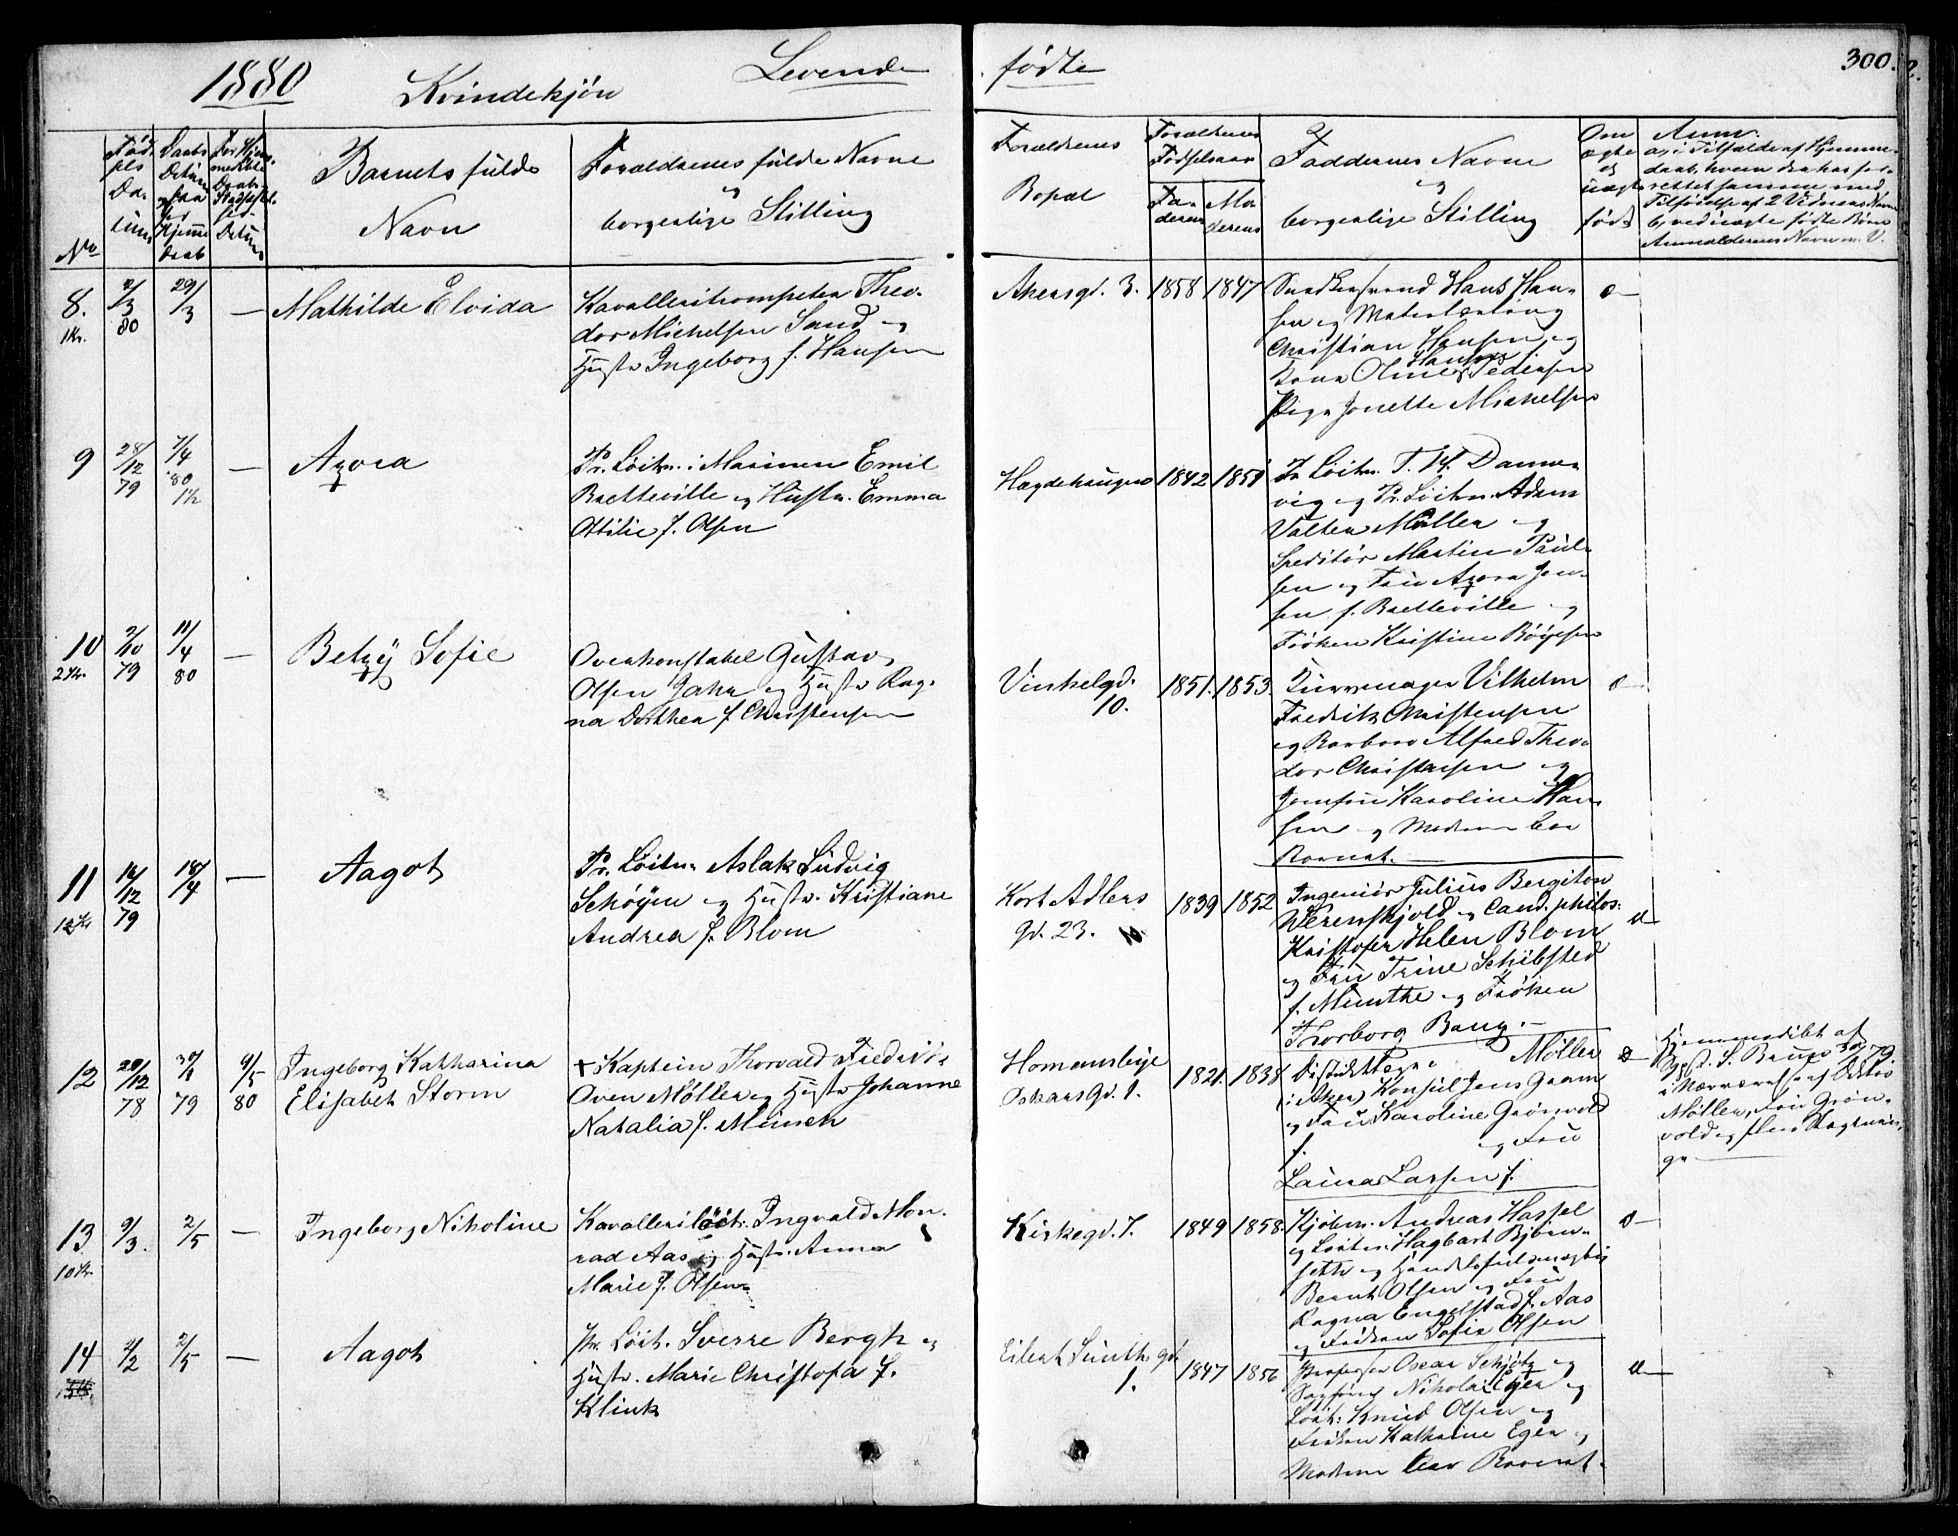 1880 Kvindekjøn Levende fødte 300.
No
Fødsels Datum
Daabs Datum
Barnets fulde Navn
Forældrenes fulde Navne og borgerlige Stilling
Forældrenes Bopæl
Forældrenes Fødselsaar
Faderens
Moderens
Faddernes Navne og borgerlige Stilling
Om ægte og uægte født
Anm.
8. 1Kr.
2/3 80
29/3
—
Mathilde Elvida
Kavalleritrompeter Theo-
dor Michelsen Sand og
Hustr Ingeborg f. Hansen
Akersgd. 3.
1858
1847
Snedkersvend Hans Han-
sen og
Christian Hansen og
Kone Oline Hansen f. Pedersen
Pige Jonette Michelsen
9
28/12 79
7/4 80
—
Azora
Pr. Løitn. i Marinen Emil
Bretteville og Hustr. Emma
Ottilie f. Olsen
Hægdehaugen
1842
1851
Pr Løitn. T. W. Danne-
vig og Pr. Løitn. Adam
Valter Møller og
Speditør Martin Paul-
sen og Fru Azora Jen-
sen f. Bretteville og
Frøken Kristine Bøyesen
10 2Kr.
2/10 79
11/4 80
—
Betzy Sofie
Overkonstabel Gustav
Olsen Jahr og Hustr Rag-
na Dorthea f Christensen
Vinkelgd. 10.
1851.
1853.
Vilhelm
Fredrik Christensen
og Barber Alfred Theo-
dor Christensen og
Jomfru Karoline Han-
sen og Moderen bar
Barnet.—
11
14/12 79
18/4
—
Aagot
Pr. Løitn. Aslak Ludvig
Schøyen og Hustr. Kristiane
Andrea f. Blom
Kort Adlers
Gd. 23.
1839
1852
Ingeniør Julius Bergiton
Werenskjold og Cand. philos:
Kristofer Helen Blom
og Fru Trine Schibsted
f. Munthe og Frøken
Thorborg Bang.—
12
28/12 78
30/1 79
9/5 80
Ingeborg Katharina
Elisabet Storm
+ Kaptein Thorvald Fredrik
Oven Møller og Hustr Johanne
Natalia f. Münch
Homansbye
Oskarsgd. 1.
1821.
1838
Distriktslæge Møller
(i Aker) Konsul Jens Gram
og Fru Karoline Grønvold
f. og Fru
Laura Larsen f.
Hjemmedøbt af
Pgst. S. Bruun 30/1 79
i Nærværelse af Doktor
Møller, Fru Grøn-
vold og flere
13 10Kr.
9/3.
2/5
—
Ingeborg Nikoline
Kavalleriløit. Ingvald Mon-
rad Aas og Hustr. Anna
Marie f. Olsen
Kirkegd. 7.
1849
1858
Kjøbm. Andreas Hassel
og Løitn. Hagbart Bjørn-
sette og Handelsfuldmægtig
Bernt Olsen og Fru
Ragna Engelstad f. Aas
og Frøken Sofie Olsen
14
2/2
2/5
—
Aagot
Pr. Løit. Sverre Bergh og
Hustr. Marie Christofa f.
Klink
Eilert Sundts gd.
1.
1847
1856
Professor Oscar Schiøtz og
Sagfører Nikolai Eger og
Løit: Knud Olsen og
Frøken Kathrine Eger og
Moderen bar Barnet.